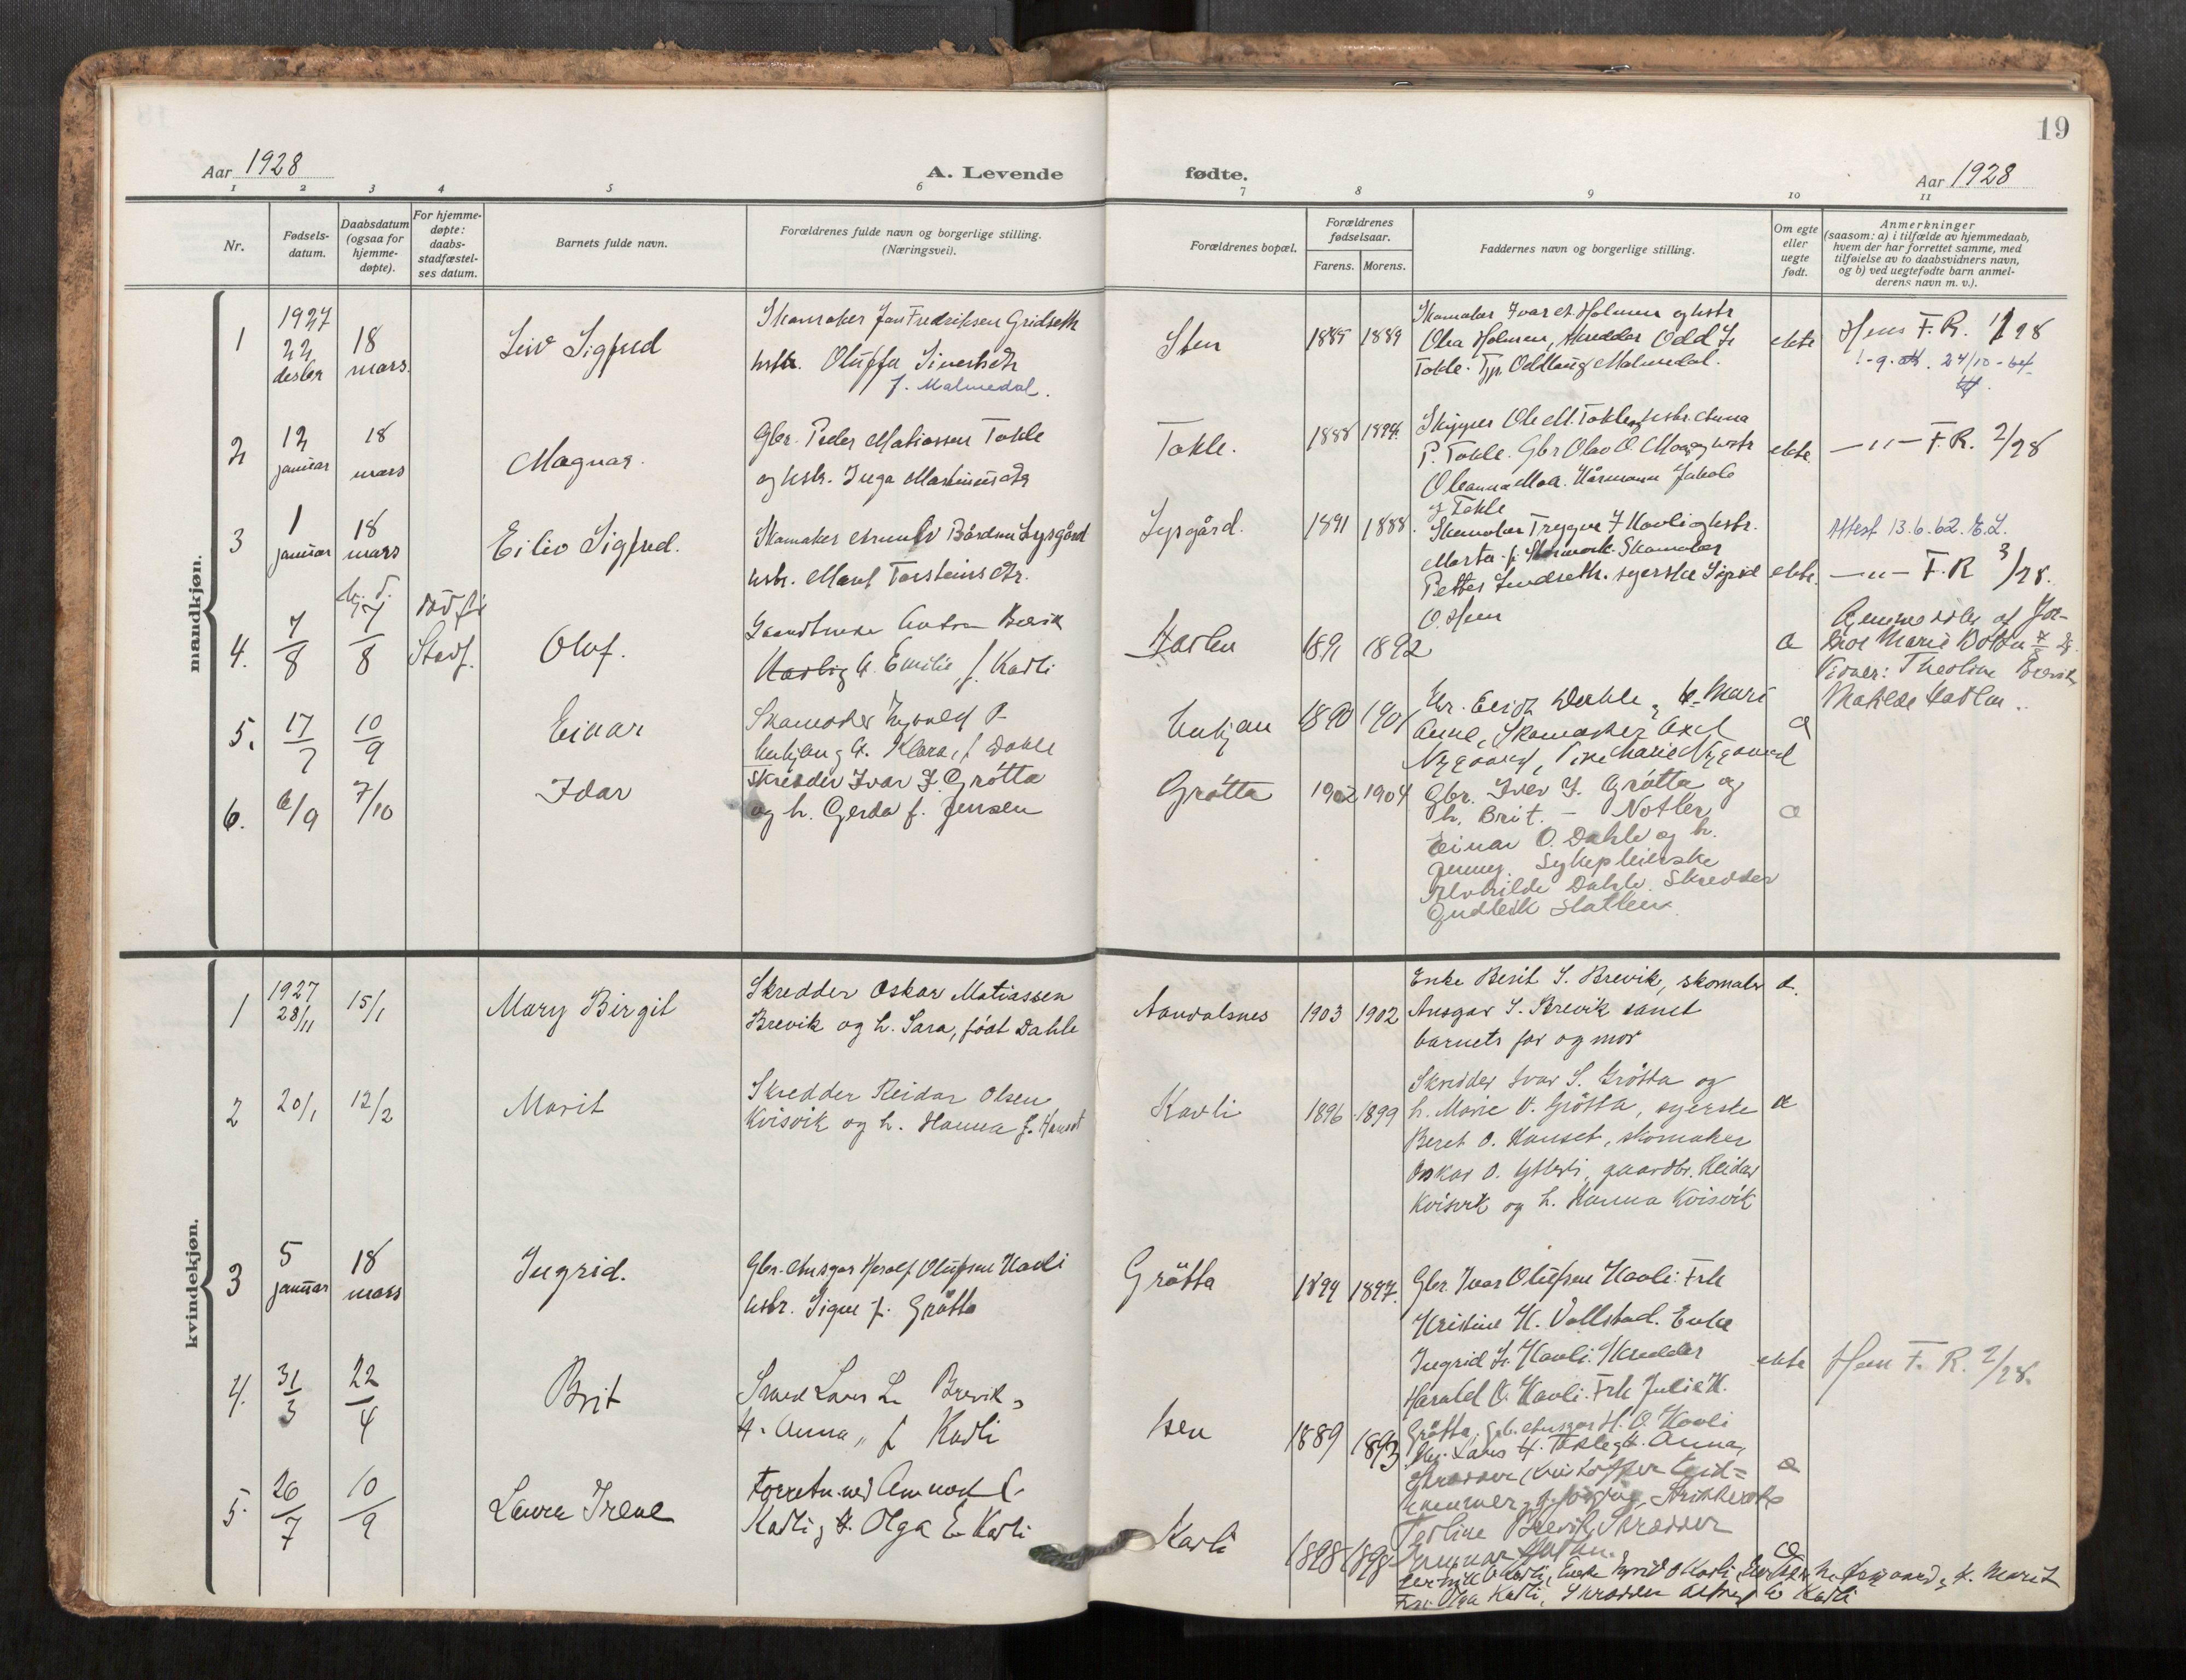 19
Aar 1928
A. Levende fødte.
Aar 1928
1 2 3 4 5 6 7 8 9 10 11
Nr.
Fødsels-
datum.
Daabsdatum
(ogsaa for
hjemme-
døpte).
For hjemme-
døpte:
daabs-
stadfæstel-
ses datum.
Barnets fulde navn.
Forældrenes fulde navn og borgerlige stilling.
(Næringsvei).
Forældrenes bopæl.
Forældrenes
fødselsaar.
Farens. Morens.
Faddernes navn og borgerlige stilling.
Om egte
eller
uegte
født.
Anmerkninger
(saasom: a) i tilfælde av hjemmedaab,
hvem der har forrettet samme, med
tilføielse av to daabsvidners navn,
og b) ved uegtefødte barn anmel-
derens navn m. v.).
mandkjøn.
1
1927
22
desbr
18
mars.
Leiv Sigfred
Skomaker Jan Fredriksen Gridseth
hstr. Oluffa Sivertsdtr
f. Malmedal.
Sten
1885 1889
Skomaker Ivar A. Holmen og hstr
Olea Holmen, skredder Odd L.
Tokle. Tjp. Oddlaug Malmedal.
ekte
Hens F. R. 1/28
2
12
januar
18
mars
Magnar.
Gbr. Peder Matiassen Tokle
og hstr. Inga Martinusdtr
Tokle.
1888
Skipper Ole M. Tokle og hstr. Anna
P. Tokle. Gbr Olav O. Moa og hstr
Oleanna Moa.
Tokle
ekte
— " — F. R. 2/28
3
1
januar
18
mars
Eiliv Sigfred.
Skomaker Arnulv Bårdsen Lysgård
hstr. Marit Torsteinsdtr.
Lysgård.
1891 1888.
Skomaker Trygve Kavli og hstr.
Marta f. Skomaker
syerske Sigrid
O. Hen
ekte
Attest 13.6.62. E.L.
— " — F. R 3/28.
4.
7
8
h. d.
7
8
død før
Stadf.
Olaf.
Emilie, f. Kavli
1891 1892
Vidner: Theoline Brevik
5.
17
7
10
9
Einar
Klara, f. Dahle
1890 1901
Anne, Skomaker Axel
Nygaard, Marie Nygaard
6.
6/9
7/10
Idar
Skredder Ivar I. Grøtta
og h. Gerda f. Jensen
Grøtta
1902 1904
Gbr. Iver I. Grøtta og
h. Brit. —
Einar O. Dahle og h.
Jenny. Sykepleierske
Alvhilde Dahle. Skredder
Gudleik Slatlem
kvindekjøn.
1
1927
28/11
15/1
Mary Birgit
Skredder Oskar Matiassen
Brevik og h. Sara, født Dahle
Aandalsnes
1903 1902
Enke Berit S. Brevik, skomaker
Ansgar S. Brevik samt
barnets far og mor
2
20/1
12/2
Marit
Skredder Reidar Olsen
Kvisvik og h. Hanna f. Hanset
Kavli
1896 1899
Skredder Ivar S. Grøtta og
h. Marie O. Grøtta, syerske
Beret O. Hanset, skomaker
Oskar O. Ytterli, gaardbr. Reidar
Kvisvik og h. Hanna Kvisvik
3
5
januar
18
mars
Ingrid.
Gbr. Ansgar Herolf Olufsen Kavli
hstr. Signe f. Grøtta
Grøtta
1894 1897.
Gbr. Ivar Olufsen Kavli. Frk
Kristine K. Vollstad. Enke
Ingrid L. Kavli. Skredder
Harald O. Kavli. Frk Julie K.
Grøtta, Gbr. Ansgar H. O. Kavli
ekte
Hen F. R. 2/28.
4.
31
3
22
4
Brit
Smed Lars L. Brevik,
H. Anna, f Kavli
Hen
1889 1893
Lars H. Tokle, H. Anna,
Brevik, Skrædder
5.
26
7
10
9
Laura Irene
Kavli, H. Olga E. Kavli
Kavli
1898 1898
Olga Kavli, Skrædder Alfred E Kavli